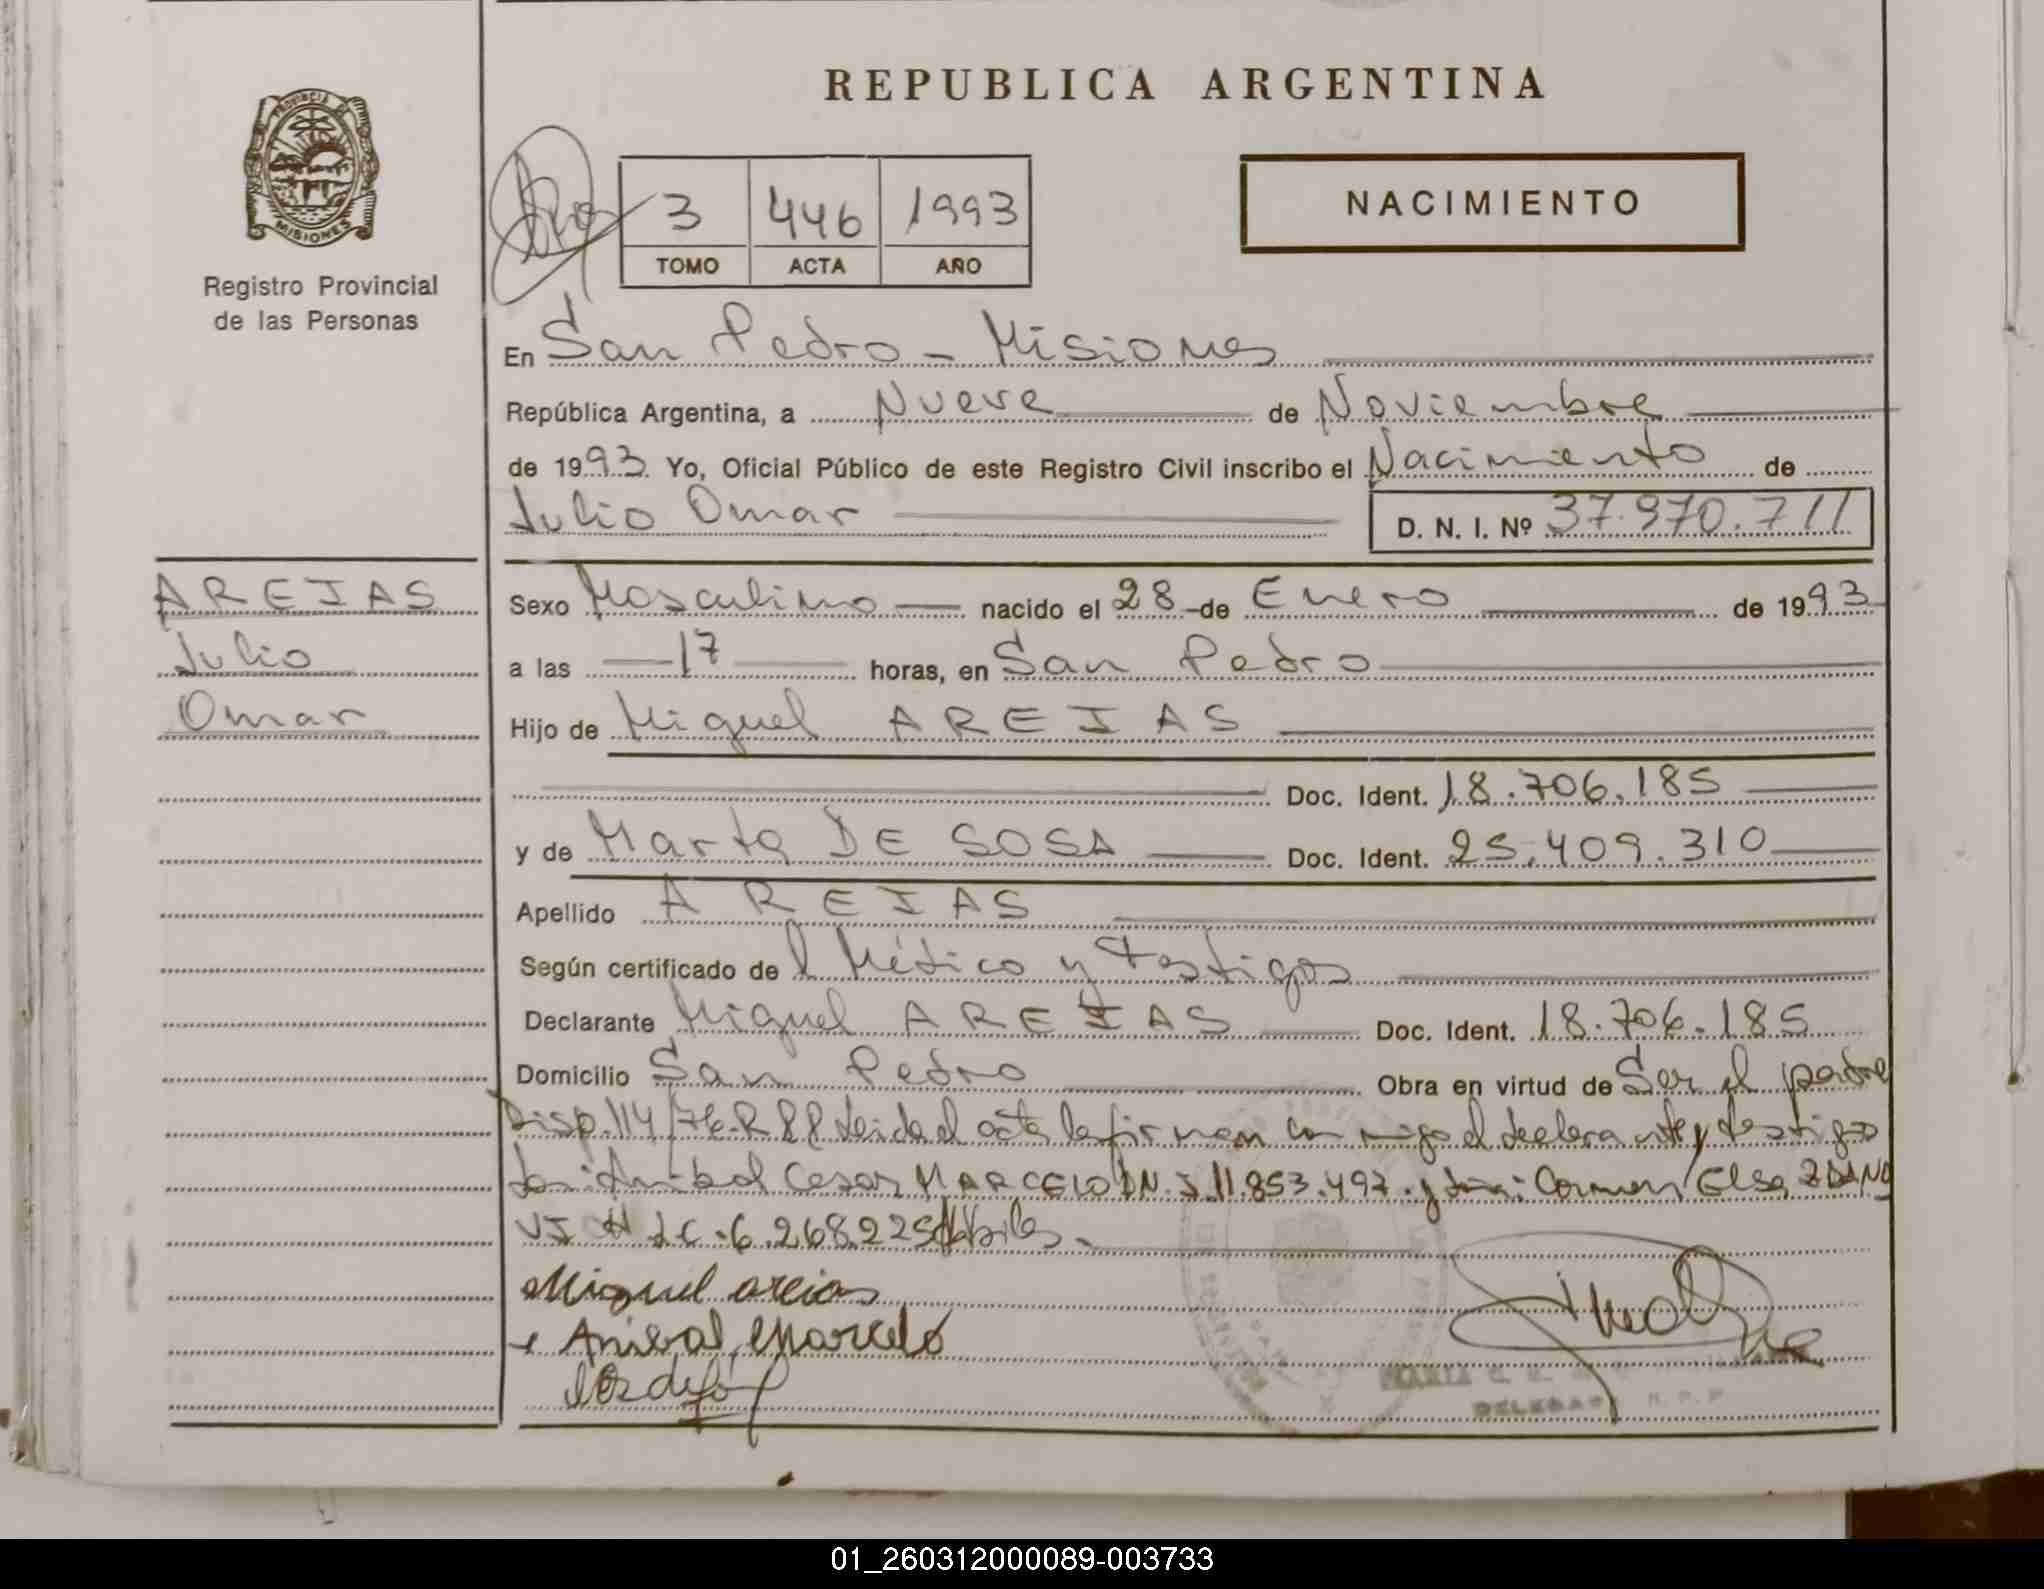 REPUBLICA ARGENTINA
PROVINCIA DE
MISIONES
Registro Provincial
de las Personas
3 446 1993
TOMO ACTA AÑO
NACIMIENTO
En San Pedro - Misiones
República Argentina, a Nueve de Noviembre
de 1993 Yo, Oficial Público de este Registro Civil inscribo el Nacimiento de
Julio Omar D. N. I. Nº 37.970.711
AREJAS
Julio
Omar
Sexo Masculino nacido el 28 de Enero de 1993
a las 17 horas, en San Pedro
Hijo de Miguel AREJAS
Doc. Ident. 18.706.185
y de Marta DE SOSA Doc. Ident. 25.409.310
Apellido AREJAS
Según certificado de l Médico y Testigos
Declarante Miguel AREJAS Doc. Ident. 18.706.185
Domicilio San Pedro Obra en virtud de Ser el padre
Disp. 114/76-R 88 Leida el acta la firman con migo el declarante y testigos
Anibal Cesar MARCELO DN.J 11.853.497 y Carmen Elsa ZDANO
VJ LC. 6.268.225
Miguel areias
Anibal Marcelo
MARIA
DELEGAD R.P.P
01_260312000089-003733